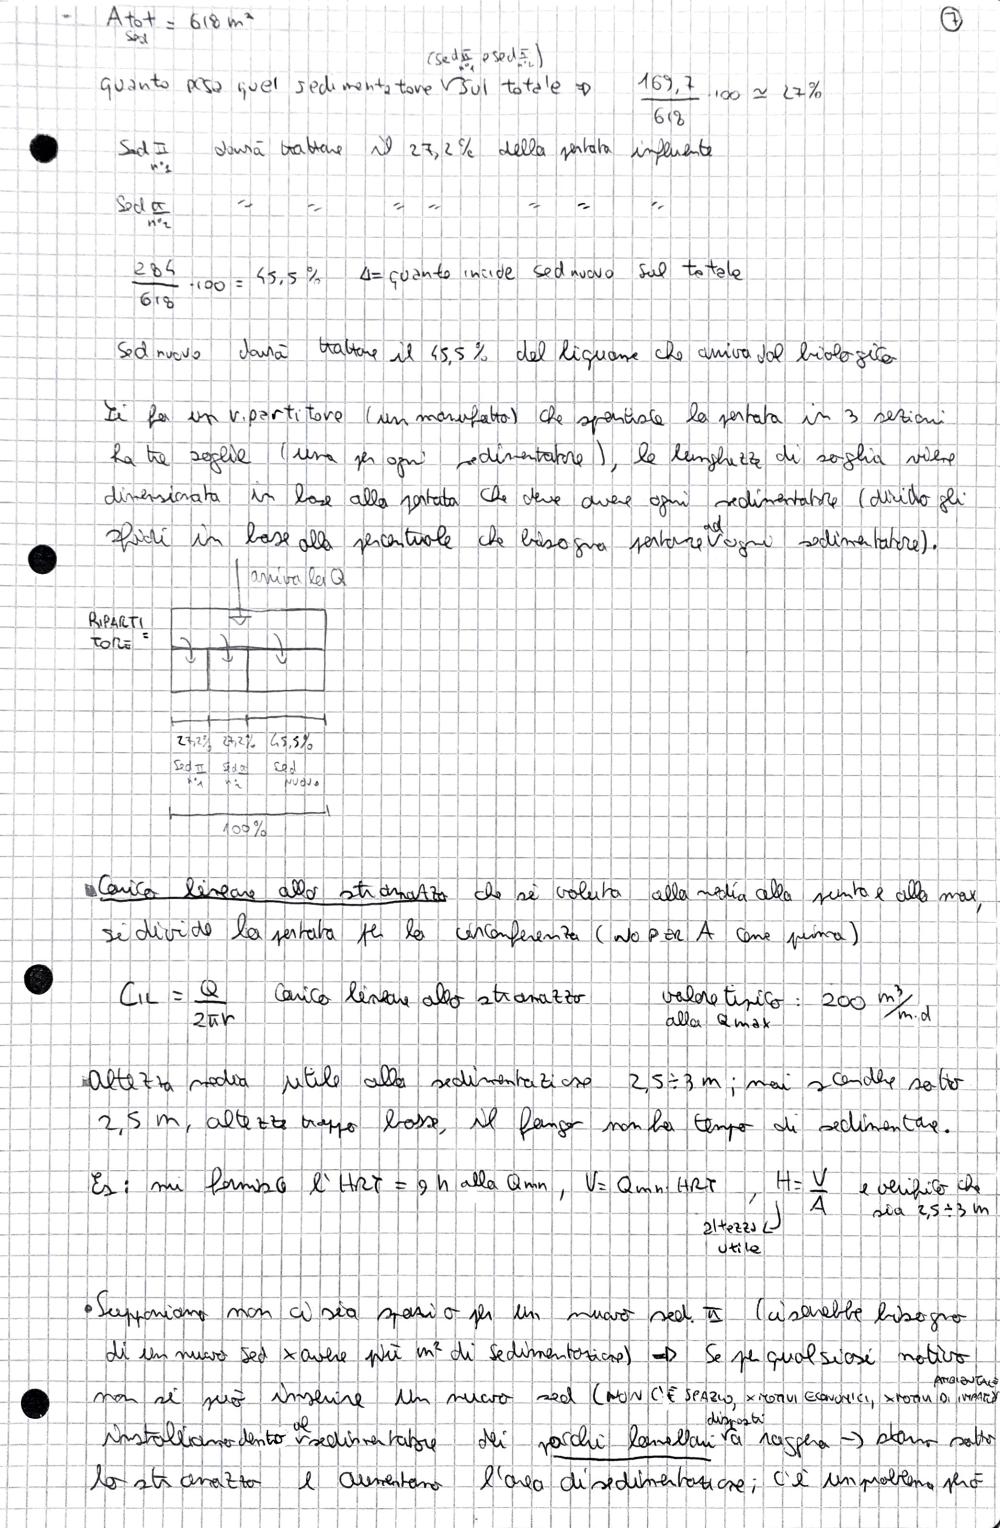 - Atot = 618 m² 7
sed
(sed II o sed II)
n°1 n°2
quanto pesa quel sedimentatore V sul totale ⇒ 169,7 / 618 · 100 ≃ 27%
Sed II dovrà trattare il 27,2% della portata influente
n°1
Sed II " " " " " " "
n°2
284 / 618 · 100 = 45,5 % Δ= quanto incide sed nuovo sul totale
Sed nuovo dovrà trattare il 45,5 % del liquame che arriva dal biologico
Si fa un ripartitore (un manufatto) che spartisce la portata in 3 sezioni
ha tre soglie (una per ogni sedimentatore), la lunghezza di soglia viene
dimensionata in base alla portata che deve avere ogni sedimentatore (divido gli
sfiori in base alla percentuale che bisogna portare ad ogni sedimentatore).
arriva la Q
RIPARTI
TORE =
27,2% 27,2% 45,5%
Sed II Sed II Sed
n°1 n°2 nuovo
100%
Carico lineare allo stramazzo che si valuta alla media alla punta e alla max,
si divide la portata per la circonferenza (NO PER A come prima)
C1L = Q / 2πr carico lineare allo stramazzo valore tipico : 200 m³/m·d
alla Qmax
Altezza media utile alla sedimentazione 2,5÷3 m; mai scendere sotto
2,5 m, altezze troppo basse, il fango non ha tempo di sedimentare.
Es: mi fornisco l'HRT = 9 h alla Qmn, V= Qmn·HRT , H= V / A e verifico che
sia 2,5÷3 m
altezza
utile
• Supponiamo non ci sia spazio per un nuovo sed. II (ci sarebbe bisogno
di un nuovo sed x avere più m² di sedimentazione) ⇒ Se per qualsiasi motivo
non si può inserire un nuovo sed (NON C'È SPAZIO, x MOTIVI ECONOMICI, x MOTIVI DI IMPATTO AMBIENTALE
installiamo dentro al sedimentatore dei pacchi lamellari disposti a raggera → stanno sotto
lo stramazzo e aumentano l'area di sedimentazione; c'è un problema però